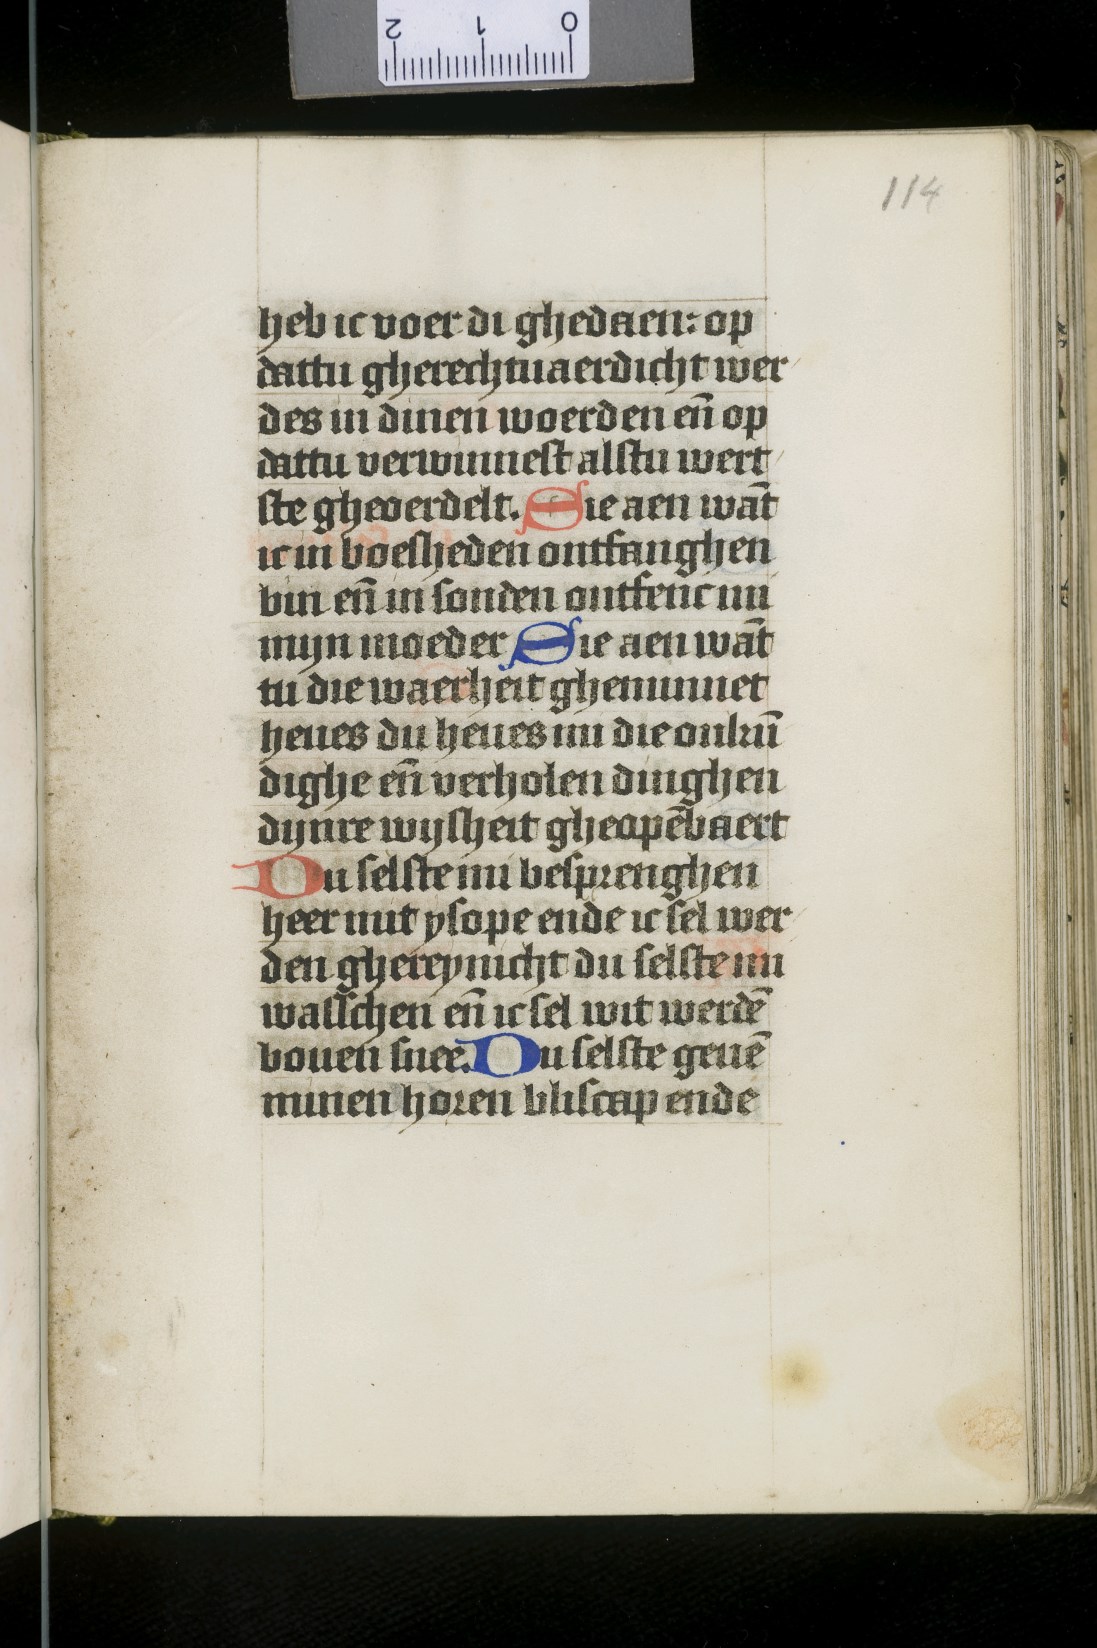 2 1 0
114
heb ic voer di ghedaen: op
dattu gherechtuaerdicht wer
des in dinen woerden en̄ op
dattu verwinnest alstu wert
ste gheoerdelt. Sie aen wāt
ic in boesheden ontfanghen
bin en̄ in sonden ontfenc mi
mijn moeder Sie aen wāt
tu die waerheit gheminnet
heues du heues mi die onkū
dighe en̄ verholen dinghen
dijnre wijsheit gheopēbaert
Du selste mi besprenghen
heer mit ysope ende ic sel wer
den ghereynicht du selste mi
wasschen en̄ ic sel wit werdē
bouen snee. Du selste geuē
minen horen bliscap ende